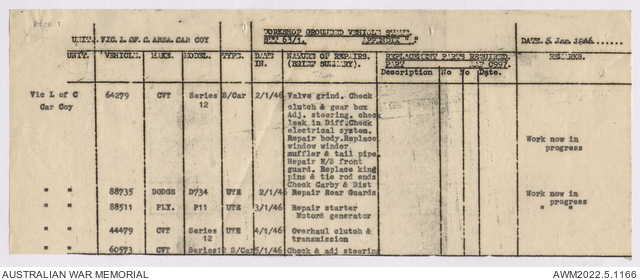 Page 1
WORKSHOP GROUNDED VEHICLE
UNIT. VIC. L. OF C. AREA. CAR COY 63/1. APPENDIX DATE. 5 Jan. 1946.......
UNIT. VEHICLE. MAKE. MODEL. TYPE. DATE NATURE OF REPAIRS. REPLACEMENT PARTS REQUIRED. REMARKS.
IN. (BRIEF SUMMARY). PART C997.
Description No No Date.
Vic L of C 64279 CVT Series S/Car 2/1/46 Valve grind. Check
Car Coy 12 clutch & gear box
Adj. steering. check
leak in Diff.Check
electrical system.
Repair body.Replace Work now in
window winder progress
muffler & tail pipe.
Repair N/S front
guard. Replace king
pins & tie rod ends
Check Carby & Dist
" " 88735 DODGE D734 UTE 2/1/46 Repair Rear Guards
" " 88511 PLY. P11 UTE 3/1/46 Repair starter Work now in
Motor& generator " " progress
" " 44479 CVT Series UTE 4/1/46 Overhaul clutch &
12 transmission
" " 60573 CVT Series12 S/Car 5/1/46 Check & adj steering
AUSTRALIAN WAR MEMORIAL AWM2022.5.1166